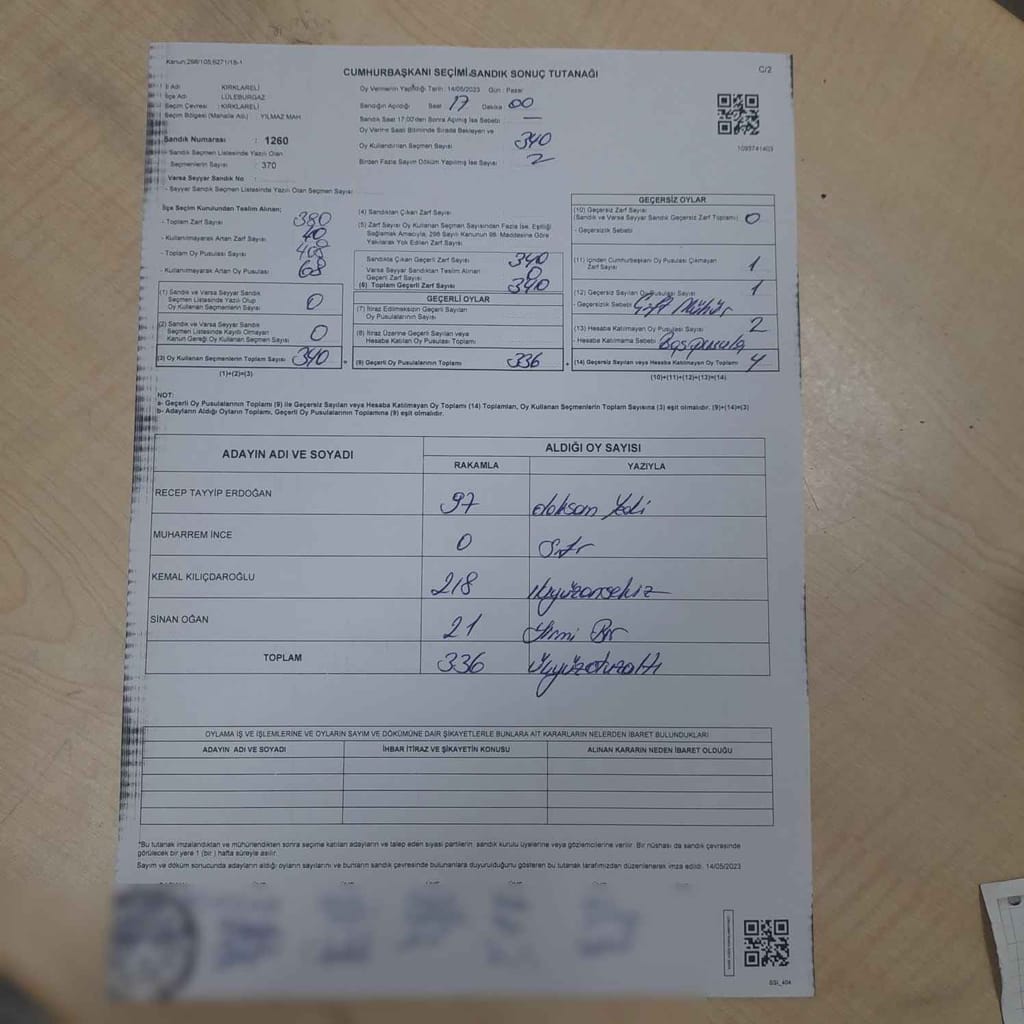 Kanun:298/105,6271/18-1
CUMHURBAŞKANI SEÇİMİ SANDIK SONUÇ TUTANAĞI
C/2
İl Adı : KIRKLARELİ
İlçe Adı : LÜLEBURGAZ
Seçim Çevresi : KIRKLARELİ
Seçim Bölgesi (Mahalle Adı) : YILMAZ MAH
Sandık Numarası : 1260
Sandık Seçmen Listesinde Yazılı Olan
Seçmenlerin Sayısı : 370
Varsa Seyyar Sandık No :
- Seyyar Sandık Seçmen Listesinde Yazılı Olan Seçmen Sayısı
Oy Vermenin Yapıldığı Tarih : 14/05/2023 Gün : Pazar
Sandığın Açıldığı Saat 17 Dakika 00
Sandık Saat 17:00'den Sonra Açılmış İse Sebebi —
Oy Verme Saati Bitiminde Sırada Bekleyen ve
Oy Kullandırılan Seçmen Sayısı 340
Birden Fazla Sayım Döküm Yapılmış İse Sayısı 2
1093741403
İlçe Seçim Kurulundan Teslim Alınan;
- Toplam Zarf Sayısı 380
- Kullanılmayarak Artan Zarf Sayısı 40
- Toplam Oy Pusulası Sayısı 408
- Kullanılmayarak Artan Oy Pusulası 68
(1) Sandık ve Varsa Seyyar Sandık
Seçmen Listesinde Yazılı Olup
Oy Kullanan Seçmenlerin Sayısı 0
(2) Sandık ve Varsa Seyyar Sandık
Seçmen Listesinde Kayıtlı Olmayan
Kanun Gereği Oy Kullanan Seçmen Sayısı 0
(3) Oy Kullanan Seçmenlerin Toplam Sayısı 340
(1)+(2)=(3)
(4) Sandıktan Çıkan Zarf Sayısı
(5) Zarf Sayısı Oy Kullanan Seçmen Sayısından Fazla İse, Eşitliği
Sağlamak Amacıyla, 298 Sayılı Kanunun 98. Maddesine Göre
Yakılarak Yok Edilen Zarf Sayısı
Sandıkta Çıkan Geçerli Zarf Sayısı 340
Varsa Seyyar Sandıktan Teslim Alınan
Geçerli Zarf Sayısı 0
(6) Toplam Geçerli Zarf Sayısı 340
GEÇERLİ OYLAR
(7) İtiraz Edilmeksizin Geçerli Sayılan
Oy Pusulasının Sayısı
(8) İtiraz Üzerine Geçerli Sayılan veya
Hesaba Katılan Oy Pusulası Toplamı
= (9) Geçerli Oy Pusulalarının Toplamı 336
GEÇERSİZ OYLAR
(10) Geçersiz Zarf Sayısı
(Sandık ve Varsa Seyyar Sandık Geçersiz Zarf Toplamı) 0
- Geçersizlik Sebebi
(11) İçinden Cumhurbaşkanı Oy Pusulası Çıkmayan
Zarf Sayısı 1
(12) Geçersiz Sayılan Oy Pusulası Sayısı 1
- Geçersizlik Sebebi Çift Mühür
(13) Hesaba Katılmayan Oy Pusulası Sayısı 2
- Hesaba Katılmama Sebebi Boş pusula
+ (14) Geçersiz Sayılan veya Hesaba Katılmayan Oy Toplamı 4
(10)+(11)+(12)+(13)=(14)
NOT:
a- Geçerli Oy Pusulalarının Toplamı (9) ile Geçersiz Sayılan veya Hesaba Katılmayan Oy Toplamı (14) Toplamları, Oy Kullanan Seçmenlerin Toplam Sayısına (3) eşit olmalıdır. (9)+(14)=(3)
b- Adayların Aldığı Oyların Toplamı, Geçerli Oy Pusulalarının Toplamına (9) eşit olmalıdır.
ADAYIN ADI VE SOYADI
ALDIĞI OY SAYISI
RAKAMLA YAZIYLA
RECEP TAYYİP ERDOĞAN 97 doksan Yedi
MUHARREM İNCE 0 Sıfır
KEMAL KILIÇDAROĞLU 218 ikiyüzonsekiz
SİNAN OĞAN 21 Yirmi Bir
TOPLAM 336 üçyüzotuzaltı
OYLAMA İŞ VE İŞLEMLERİNE VE OYLARIN SAYIM VE DÖKÜMÜNE DAİR ŞİKAYETLERLE BUNLARA AİT KARARLARIN NELERDEN İBARET BULUNDUKLARI
ADAYIN ADI VE SOYADI İHBAR İTİRAZ VE ŞİKAYETİN KONUSU ALINAN KARARIN NEDEN İBARET OLDUĞU
*Bu tutanak imzalandıktan ve mühürlendikten sonra seçime katılan adayların ve talep eden siyasi partilerin, sandık kurulu üyelerine veya gözlemcilerine verilir. Bir nüshası da sandık çevresinde
görülecek bir yere 1 (bir) hafta süreyle asılır.
Sayım ve döküm sonucunda adayların aldığı oyların sayılarını ve bunların sandık çevresinde bulunanlara duyurulduğunu gösteren bu tutanak tarafımızdan düzenlenerek imza edildi. 14/05/2023
SSI_404